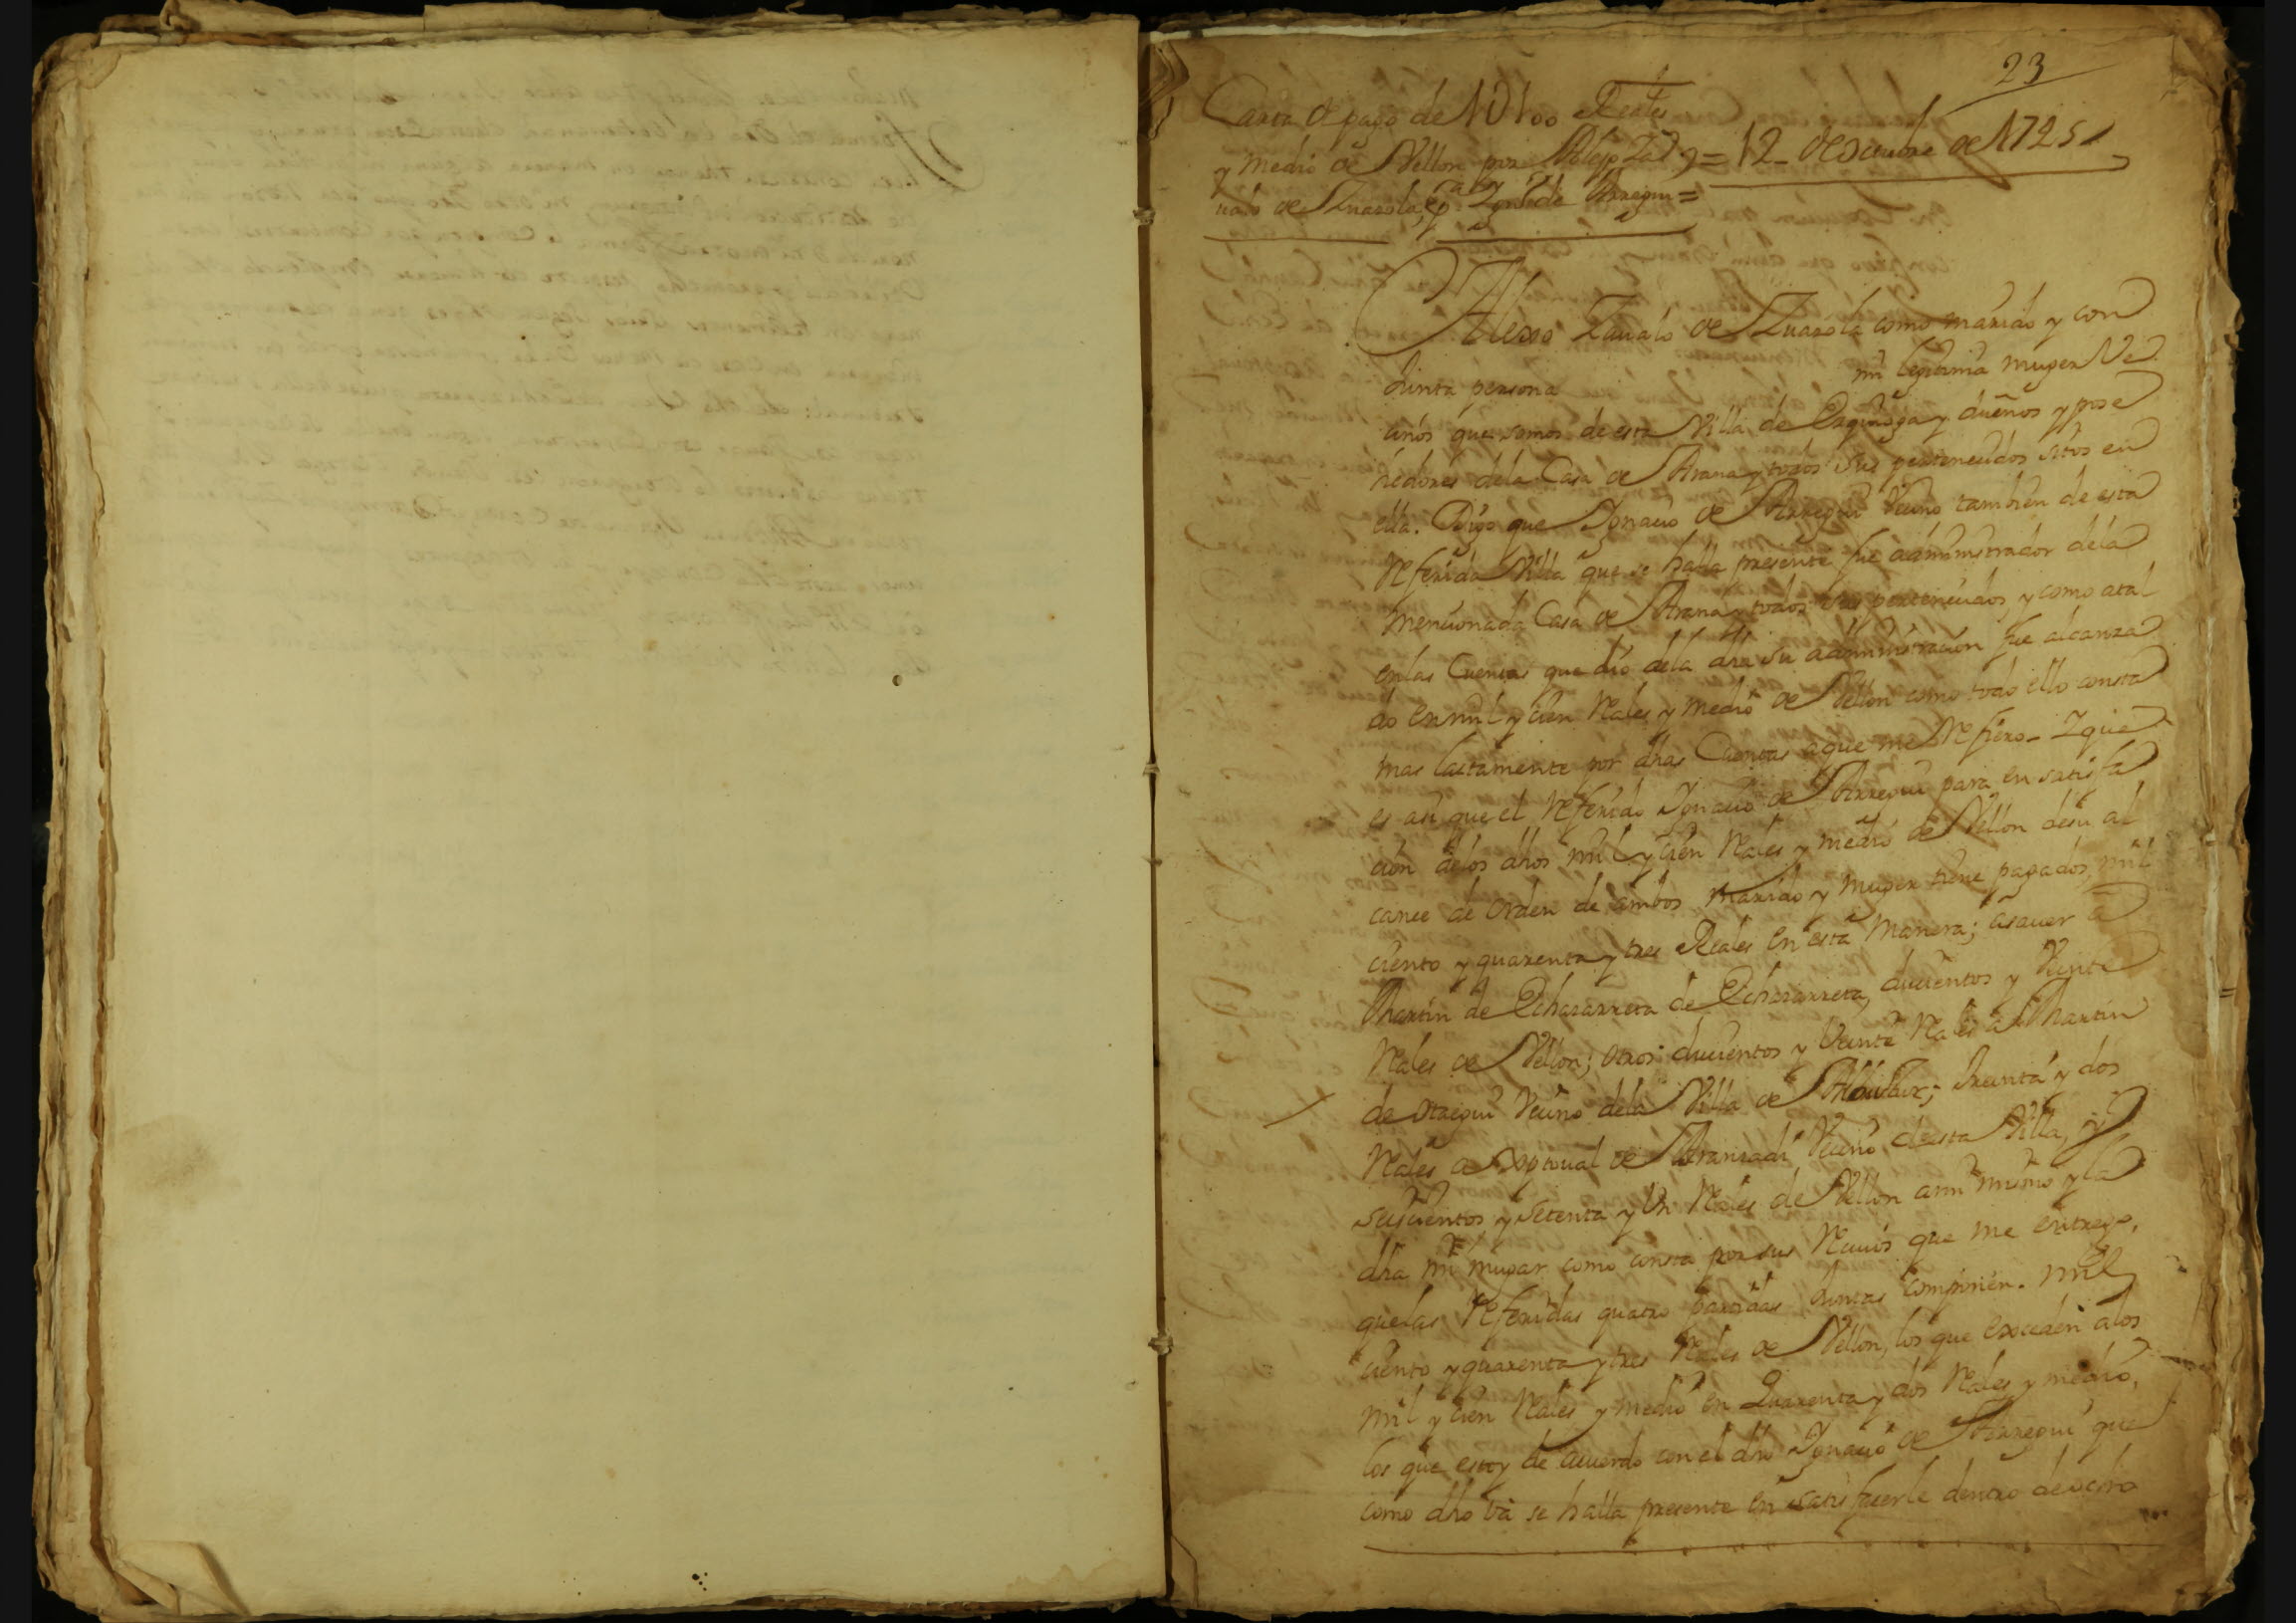 23
Carta de pago de 1U100 Reales
y medio de Vellon por Alejo Za = 12 de octubre de 1725
ualo de Zuazola, de Ignº de Arregui =
Alexo Zaualo de Zuazola como marido y con
Junta persona mi legitima muger Ve
cinos que somos de esta Villa de Ezquioga y dueños y pose
hedores dela Casa de Arana y todos sus pertenecidos sitos en
ella. Digo que Ignacio de Arregui Vecino tambien de esta
Referida Villa que se halla presente fue administrador dela
mencionada Casa de Arana y todos sus pertenecidos, y como atal
enlas Cuentas que dió dela dha su administracion fue alcanza
do en mil y cien Rales y medio de Vellon como todo ello consta
mas lastamente por dhas Cuentas aque me Refiero - Y que
es asi que el Referido Ignacio de Arregui para en satisfa
cion delos dhos mil y cien Rales y medio de Vellon desu al
cance de orden de ambos marido y muger tiene pagados, mil
ciento y quarenta y tres Reales en esta manera; asauer a
Martin de Echazarreta de Echazarreta, ducientos y Veinte
Rales de Vellon; otros ducientos y Veinte Rales a Martin
de Otaegui Vecino dela Villa de; treinta y dos
Rales a Xptoual de Aranzadi Vecino deesta Villa, y
seiscientos y setenta y Un Rales de Vellon ami mismo y la
dha mi muger como consta por sus Reciuos que me entrego,
quelas Referidas quatro partidas Juntas componen. mil
ciento y quarenta y tres Rales de Vellon, los que exceden alos
mil y cien Rales y medio en Quarenta y dos Rales y medio,
los que estoy de acuerdo con el dho Ignacio de Arregui que
como dho va se halla presente en satisfacerle dentro de ocho